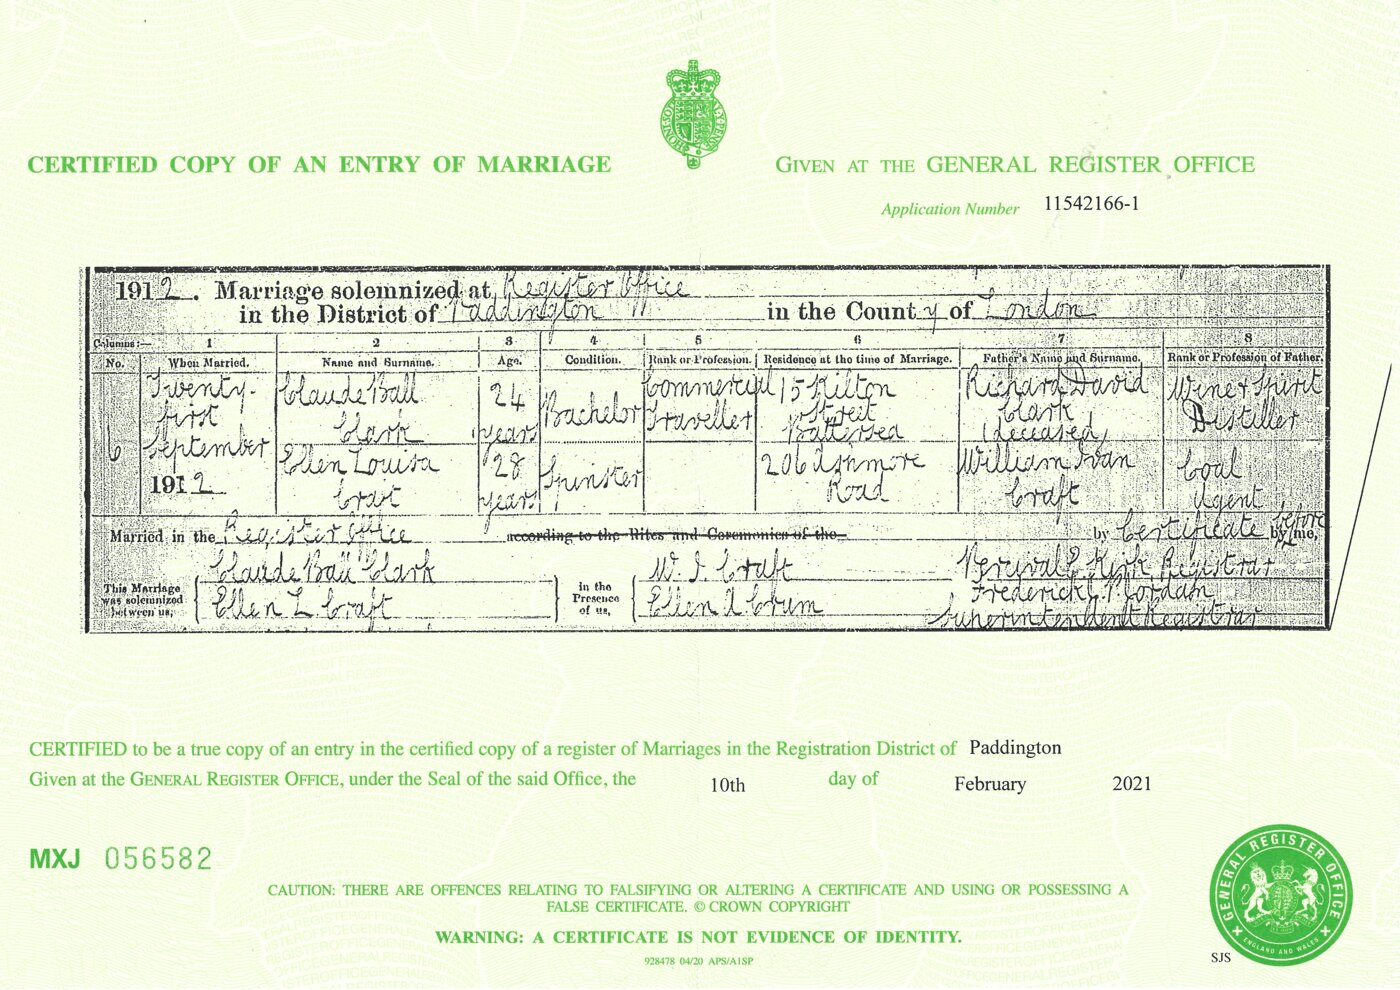 CERTIFIED COPY OF AN ENTRY OF MARRIAGE
GIVEN AT THE GENERAL REGISTER OFFICE
Application Number 11542166-1
1912. Marriage solemnized at Register Office
in the District of Paddington in the County of London
Columns:— 1 2 3 4 5 6 7 8
No. When Married. Name and Surname. Age. Condition. Rank or Profession. Residence at the time of Marriage. Father's Name and Surname. Rank or Profession of Father.
6 Twenty-first September 1912
Claude Ball Clark 24 years Bachelor Commercial Traveller 15 Kilton Street Battersea Richard David Clark (deceased) Wine & Spirit Distiller
Ellen Louisa Craft 28 years Spinster 206 Ashmore Road William Ivan Craft Coal Agent
Married in the Register Office according to the Rites and Ceremonies of the by Certificate by before me,
This Marriage was solemnized between us,
Claude Ball Clark
Ellen L Craft
in the Presence of us,
W. I. Craft
Ellen A Crum
Percival E Kirk Registrar
Frederick Jordan
Superintendent Registrar
CERTIFIED to be a true copy of an entry in the certified copy of a register of Marriages in the Registration District of Paddington
Given at the GENERAL REGISTER OFFICE, under the Seal of the said Office, the 10th day of February 2021
MXJ 056582
CAUTION: THERE ARE OFFENCES RELATING TO FALSIFYING OR ALTERING A CERTIFICATE AND USING OR POSSESSING A
FALSE CERTIFICATE. © CROWN COPYRIGHT
WARNING: A CERTIFICATE IS NOT EVIDENCE OF IDENTITY.
928478 04/20 APS/A1SP
SJS
GENERAL REGISTER OFFICE
ENGLAND AND WALES